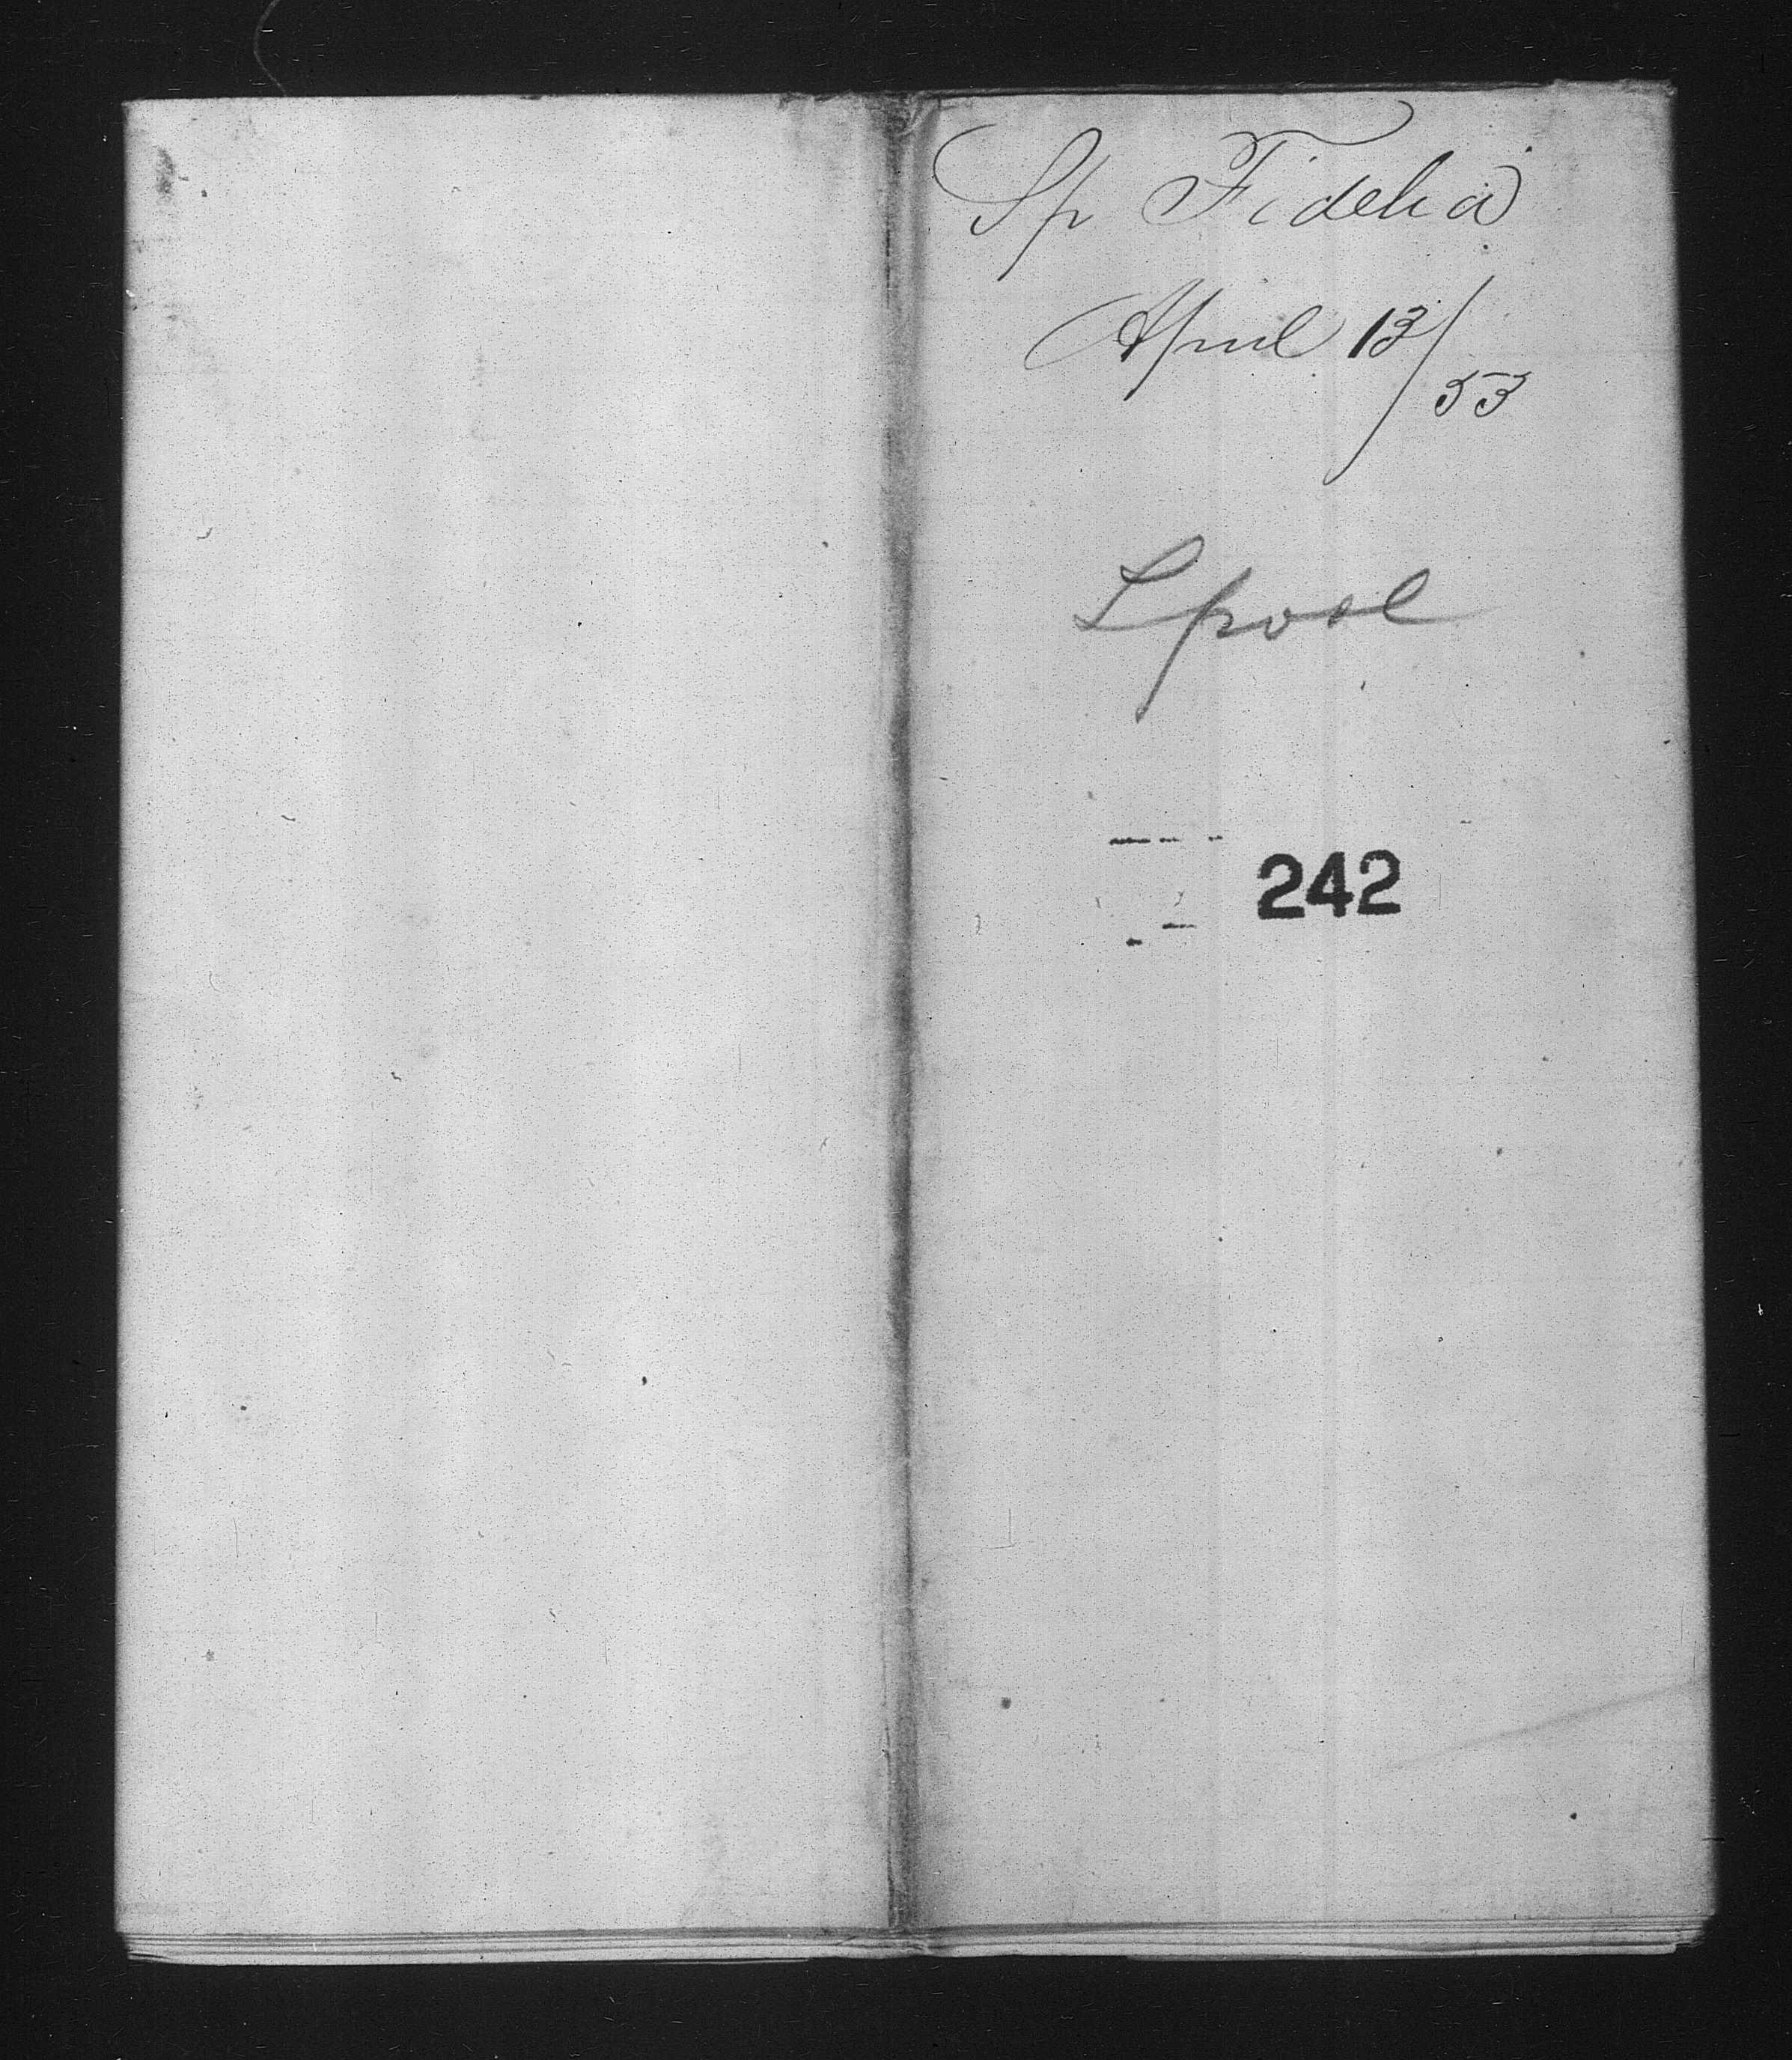 Sp Fidelia
April 13/
53
Lpool
242